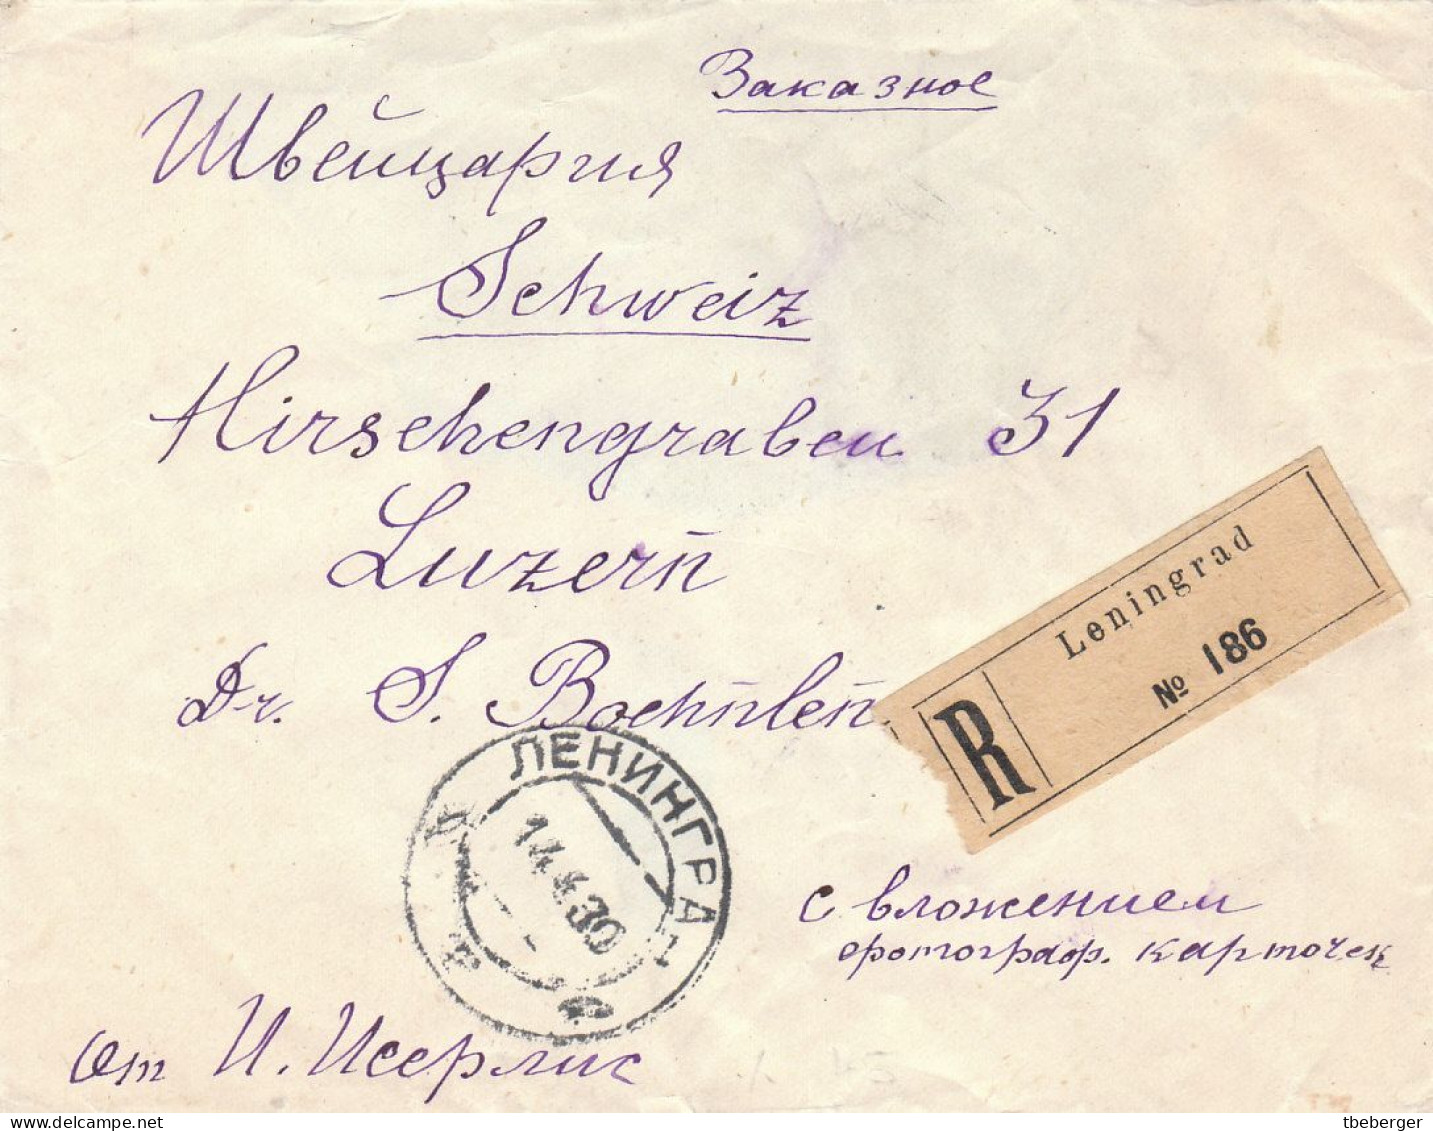 Заказное
Швейцария
Schweiz
Hirschengraben 31
Luzern
Dr. S. Boehnlen
R
Leningrad
№ 186
ЛЕНИНГРАД
14.4.30
с вложением
фотограф. карточек
от И. Исерлис
delcampe.net
tbeberger